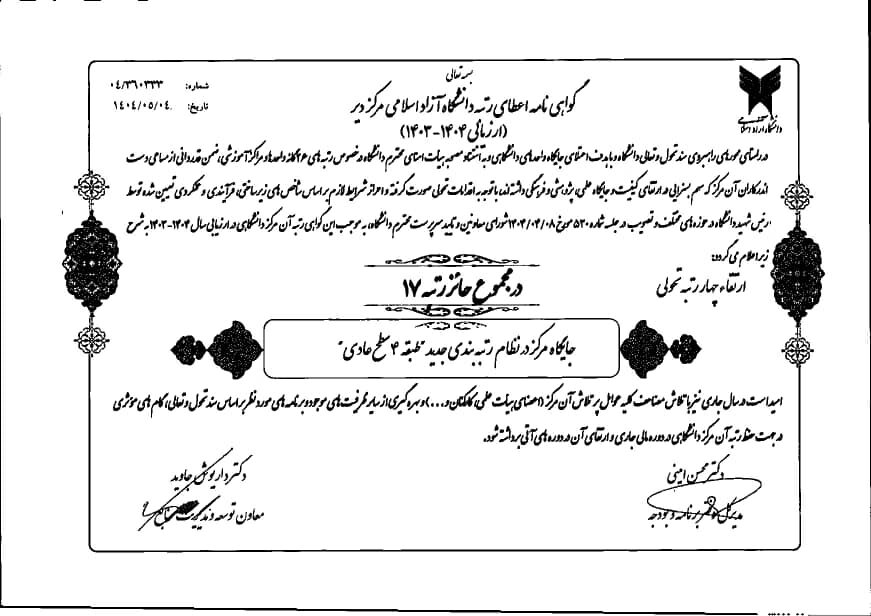 بسمه تعالی
شماره: ۰۴/۳۶۰۳۳۳
گواهی نامه اعطای رتبه دانشگاه آزاد اسلامی مرکز دیر
تاریخ: ۱۴۰۴/۰۵/۰۴
(ارزیابی ۱۴۰۴-۱۴۰۳)
دانشگاه آزاد اسلامی
در راستای محورهای راهبردی سند تحول و تعالی دانشگاه و با هدف اعتلای جایگاه واحدهای دانشگاهی و به استناد مصوبه هیات امنای محترم دانشگاه در خصوص رتبه های ۲۶ گانه واحدها و مراکز آموزشی، ضمن قدردانی از مساعی دست
اندرکاران آن مرکز که سهم بسزایی در ارتقای کیفیت و جایگاه علمی، پژوهشی و فرهنگی داشته اند، با توجه به اقدامات تحولی صورت گرفته و احراز شرایط لازم بر اساس شاخص های زیرساختی، فرآیندی و عملکردی تعیین شده توسط
رئیس شهید دانشگاه در حوزه های مختلف و تصویب در جلسه شماره ۵۳۰ مورخ ۱۴۰۴/۰۴/۰۸ شورای معاونین و تایید سرپرست محترم دانشگاه، به موجب این گواهی رتبه آن مرکز دانشگاهی در ارزیابی سال ۱۴۰۴-۱۴۰۳ به شرح
زیر اعلام می گردد:
ارتقاء چهار رتبه تحولی
در مجموع حائز رتبه ۱۷
جایگاه مرکز در نظام رتبه بندی جدید "طبقه ۴ سطح عادی"
امید است در سال جاری نیز با تلاش مضاعف کلیه عوامل پر تلاش آن مرکز (اعضای هیات علمی، کارکنان و...) و بهره گیری از سایر ظرفیت های موجود و برنامه های مورد نظر بر اساس سند تحول و تعالی، گام های مؤثری
در جهت حفظ رتبه آن مرکز دانشگاهی در دوره مالی جاری و ارتقای آن در دوره های آتی برداشته شود.
دکتر محسن امینی
مدیرکل دفتر برنامه و بودجه
دکتر داریوش جاوید
معاون توسعه و مدیریت منابع